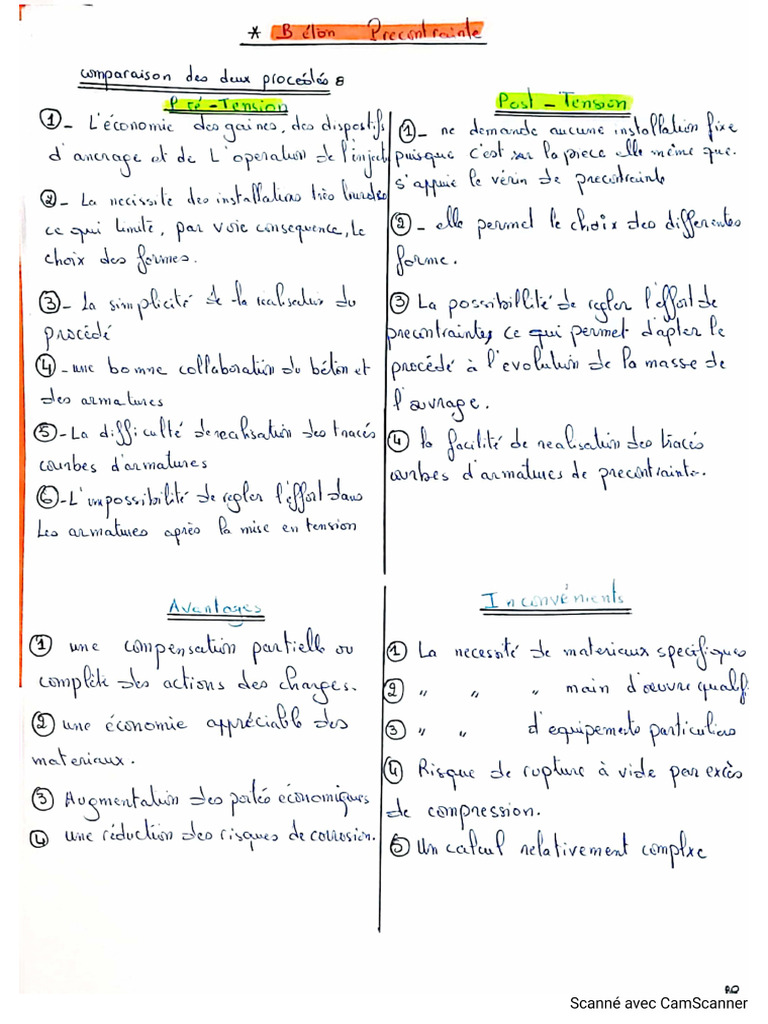 * Béton Precontrainte
comparaison des deux procédés :
Pré-Tension
①- L'économie des gaines, des dispositifs
d'ancrage et de L'operation de l'inject
②- La nécissité des installations très lourdes
ce qui limité, par voie consequence, le
choix des formes.
③- La simplicité de la réalisation du
procédé
④- une bonne collaboration du béton et
des armatures
⑤- La difficulté de realisation des tracés
courbes d'armatures
⑥- L'impossibilité de regler l'éffort dans
les armatures après la mise en tension
Post-Tension
①- ne demande aucune installation fixe
puisque c'est sur la piece elle même que.
s'appuie le vérin de precontrainte
②- elle permet le choix des differentes
forme.
③ La possibillité de regler l'éffort de
precontrainte, ce qui permet d'apter le
procédé à l'evolution de la masse de
l'ouvrage.
④ la facilité de realisation des tracés
courbes d'armatures de precontrainte.
Avantages
① une compensation partielle ou
complète des actions des charges.
② une économie appréciable des
materiaux.
③ Augmentation des portés économiques
④ une réduction des risques de corrosion.
Inconvénients
① La necessité de materiaux specifiques
② " " " main d'œuvre qualif
③ " " d'equipements particuliers
④ Risque de rupture à vide par excès
de compression.
⑤ Un calcul relativement complxe
Scanné avec CamScanner